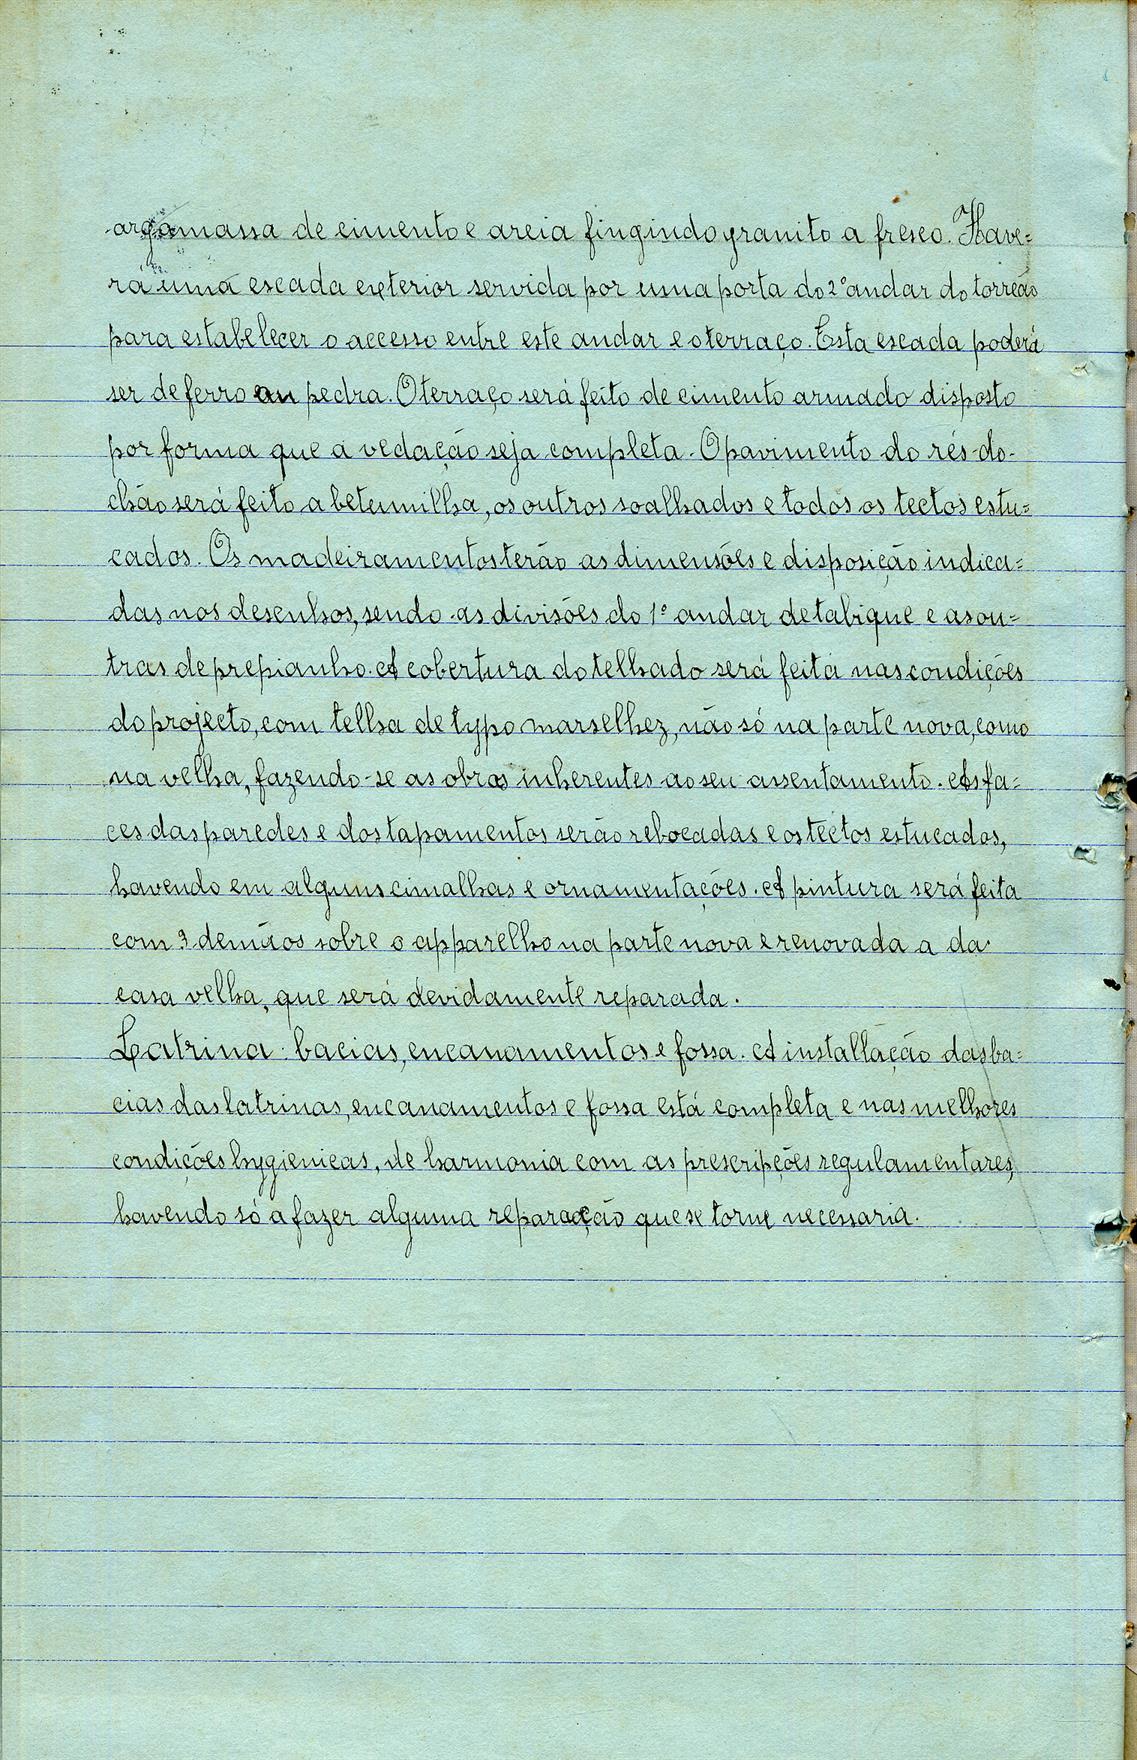 argamassa de cimento e areia fingindo granito a fresco. Have=
rá uma escada exterior servida por uma porta do 2º andar do torreão
para estabelecer o accesso entre este andar e o terraço. Esta escada poderá
ser de ferro ou pedra. O terraço será feito de cimento armado disposto
por forma que a vedação seja completa. O pavimento do rés-do-
chão será feito a betumilha, os outros soalhados e todos os tectos estu=
cados. Os madeiramentos terão as dimensões e disposição indica=
das nos desenhos, sendo as divisões do 1º andar de tabique e as ou=
tras de prepianho. A cobertura do telhado será feita nas condições
do projecto, com telha de typo marselhez, não só na parte nova, como
na velha, fazendo-se as obras inherentes ao seu assentamento. As fa=
ces das paredes e dos tapamentos serão rebocadas e os tectos estucados,
havendo em alguns cimalhas e ornamentações. A pintura será feita
com 3 demãos sobre o apparelho na parte nova e renovada a da
casa velha, que será devidamente reparada.
Latrina: bacias, encanamentos e fossa. A installação das ba=
cias das latrinas, encanamentos e fossa está completa e nas melhores
condições hygienicas, de harmonia com as prescripções regulamentares,
havendo só a fazer alguma reparação que se torne necessaria.